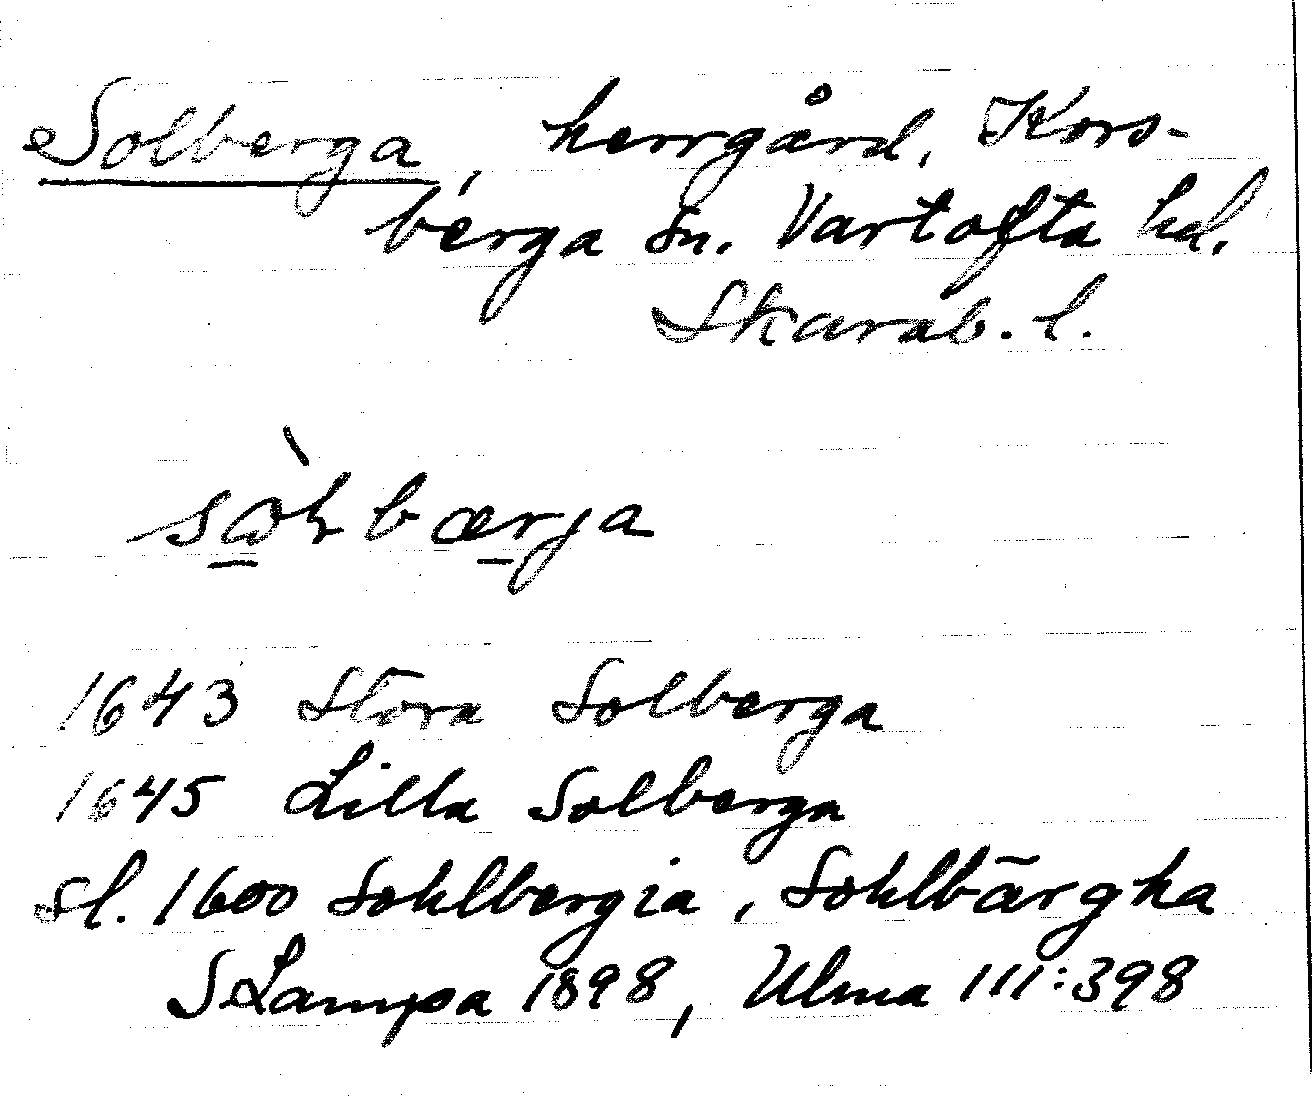 Solberga, herrgård, Kors-
berga sn. Vartofta hd.
Skarab. l.
1643 Stora Solberga
1645 Lilla Solberga
sl. 1600 Sohlbergia, Sohlbärgha
S Lampa 1898, Ulma 111:398